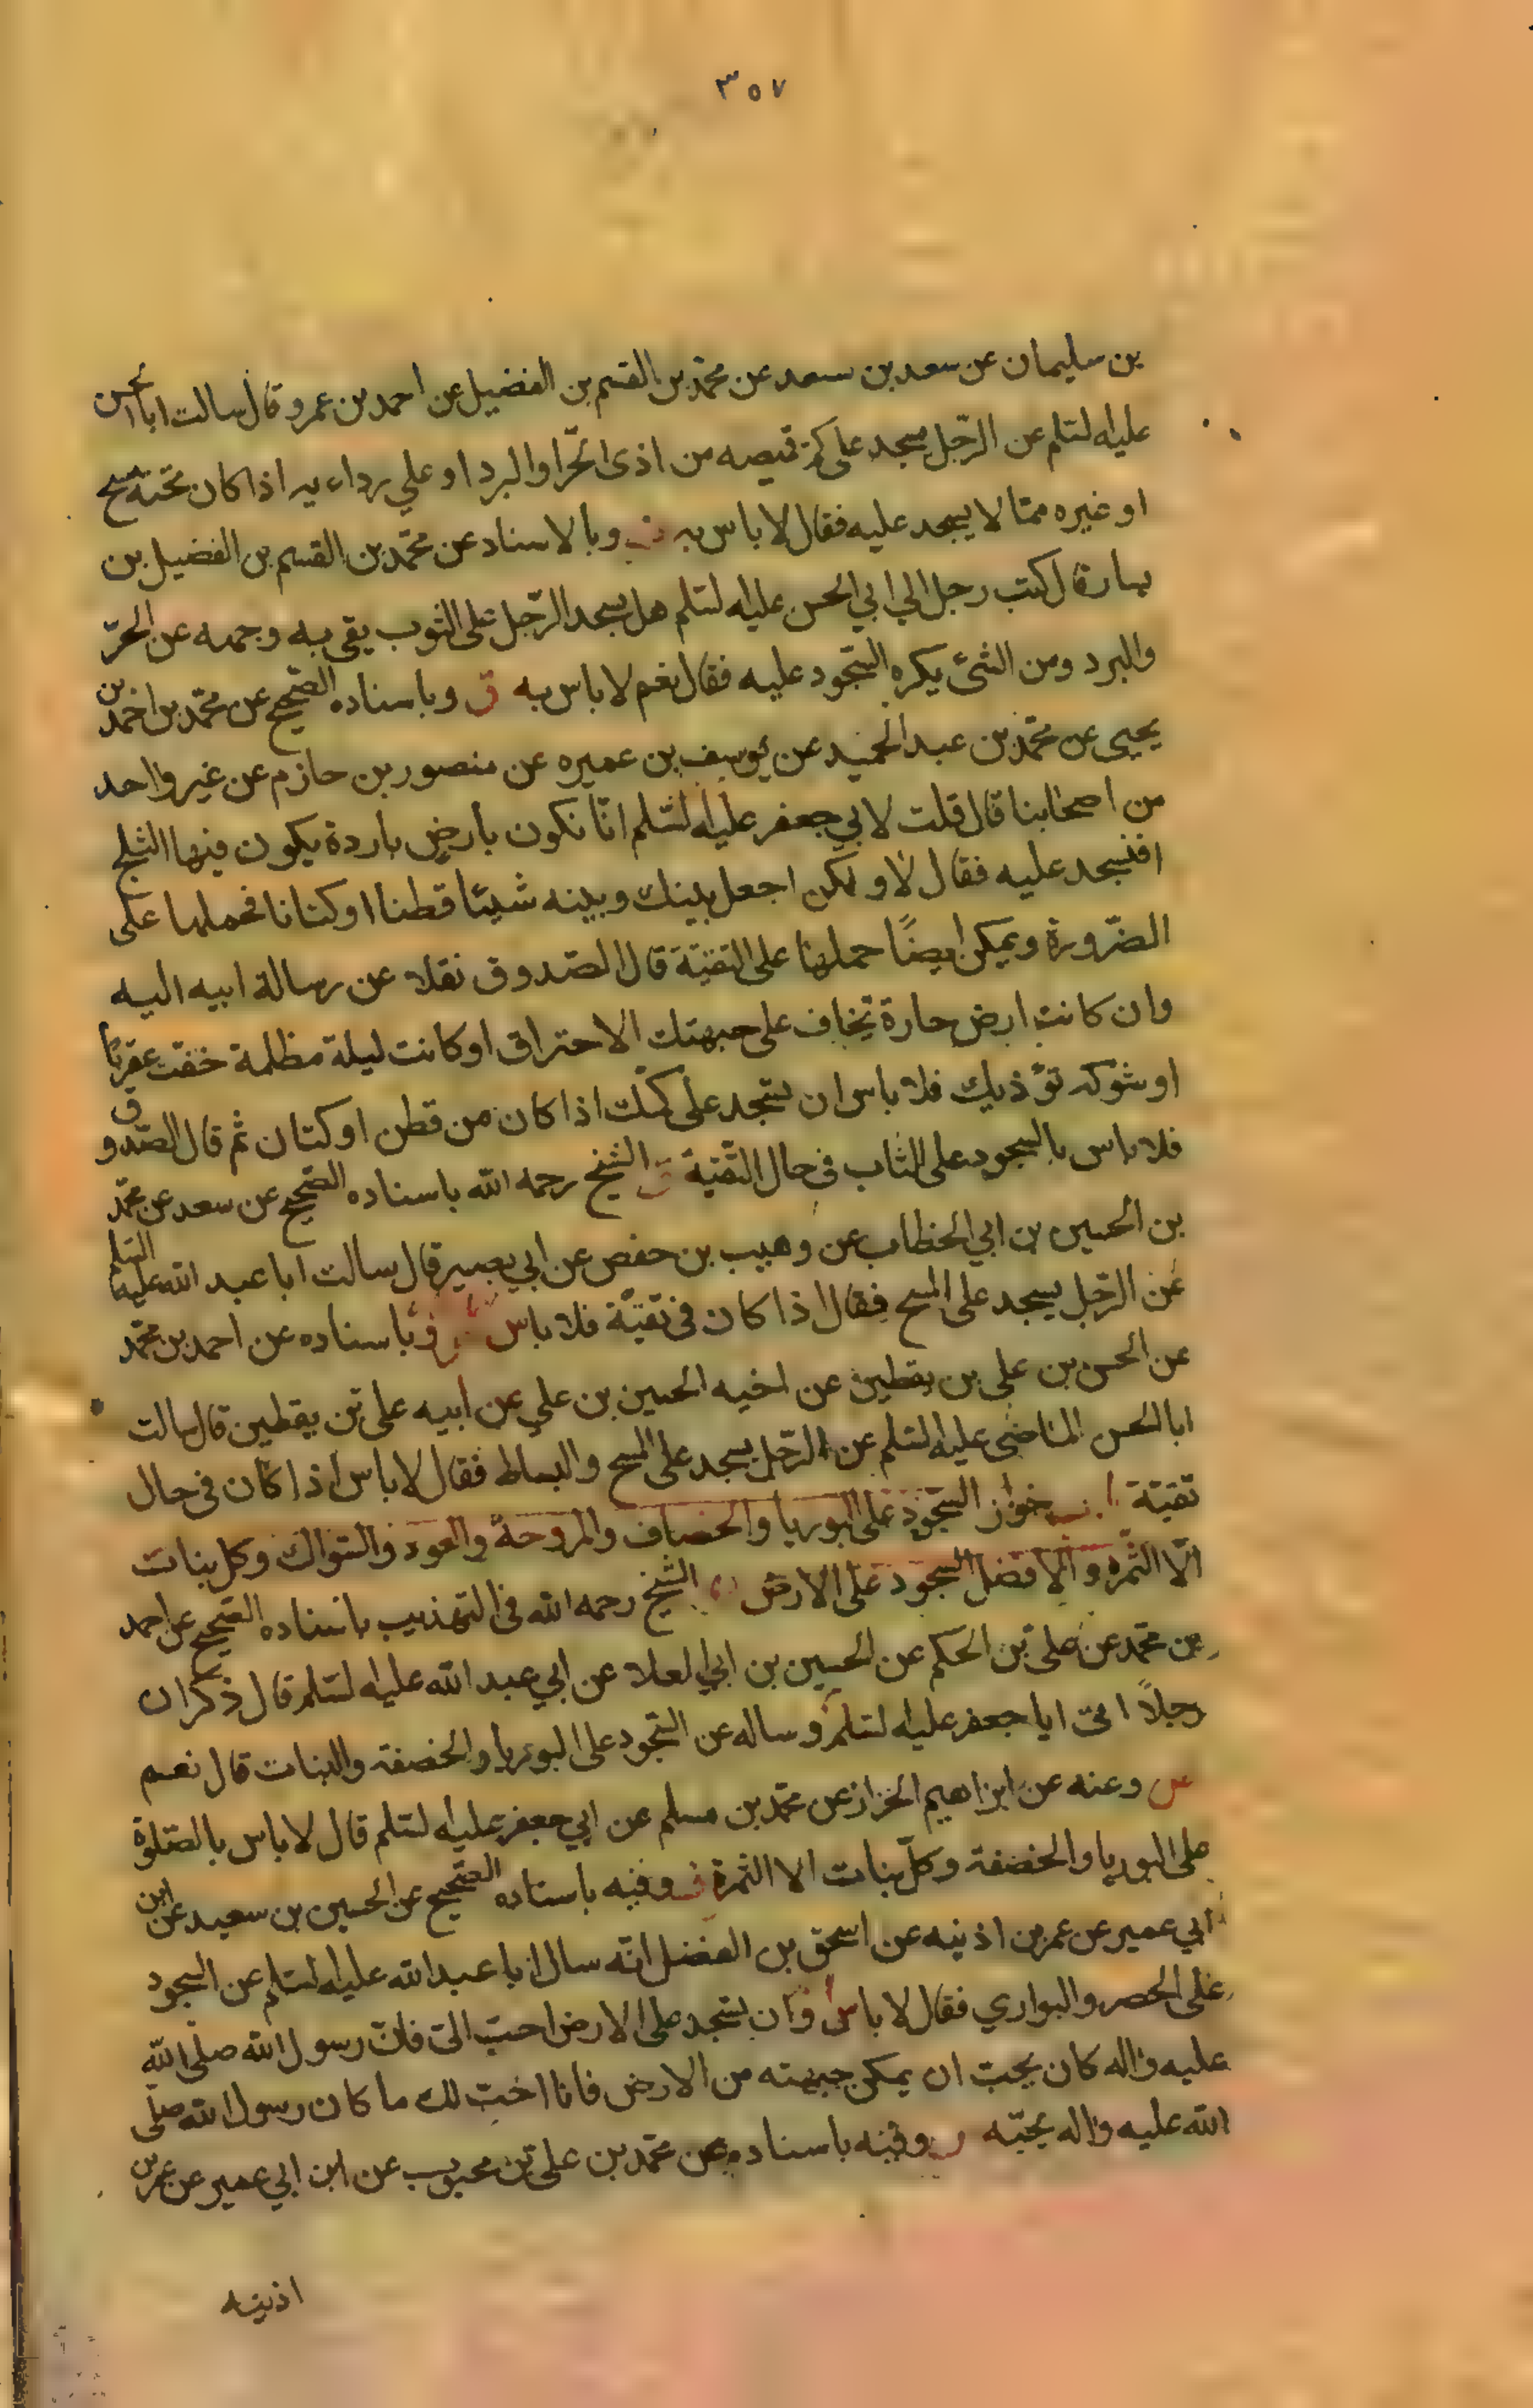 ٣٥٧
بن سليمان عن سعد بن سعد عن محمد بن القسم بن الفضيل عن احمد بن عمر و قال سالت ابا الحسن
عليه لسّلم عن الرّجل يسجد على كمّ قميصه من اذى الحرّ او البرد او علي رداءيه اذا كان تحته مسح
او غيره ممّا لا يسجد عليه فقال لا باس به وبالاسناد عن محمّد بن القسم بن الفضيل بن
يسار قال كتب رجل الي ابي الحسن عليه لسّلم هل يسجد الرّجل على الثوب يقى به وجهه عن الحرّ
والبرد ومن الشئ يكره السّجود عليه فقال نعم لا باس به ق وباسناده الصّحيح عن محمّد بن احمد بن
يحيى عن محمّد بن عبد الحميد عن يوسف بن عميره عن منصور بن حازم عن غير واحد
من اصحابنا قال قلت لابي جعفر عليه لسّلم انّا نكون بارض باردة يكون فيها الثلج
افنسجد عليه فقال لا ولكن اجعل بينك وبينه شيئا قطنا او كتانا فحملها على
الضّرورة ويمكن ايضًا حملها على التقيّة قال الصّدوق نقلا عن رسالة ابيه اليه
وان كانت ارض حارة تخاف على جبهتك الاحتراق او كانت ليلة مظلمة خفت عقربًا
او شوكه تؤذيك فلا باس ان تسجد على كمّك اذا كان من قطن او كتان ثم قال الصّدوق
فلا باس بالسجود على الثاب في حال التّقيّة ق الشيخ رحمه الله باسناده الصّحيح عن سعد عن محمّد
بن الحسين بن ابي الخطاب عن وهيب بن حفص عن ابي بصير قال سالت ابا عبد الله عليه السّلم
عن الرّجل يسجد على المسح فقال اذا كان في تقيّة فلا باس وباسناده عن احمد بن محمّد
عن الحسن بن علي بن يقطين عن اخيه الحسين بن علي عن ابيه علي بن يقطين قال سالت
ابا الحسن الماضى عليه لسّلم عن الرّجل يسجد على المسح والبساط فقال لا باس اذا كان في حال
تقيّة جواز السّجود على البوريا والخصاف والمروحة والعود والسّواك وكل نبات
الّا الثّمرة والافضل السجود على الارض الشيخ رحمه الله في التهذيب باسناده الصّحيح عن احمد
بن محمد عن علي بن الحكم عن الحسين بن ابي العلا عن ابي عبد الله عليه لسّلم قال ذكر ان
رجلاً اتى ابا جعفر عليه لسّلم وساله عن السّجود على البوريا والخصفة والنبات قال نعم
وعنه عن ابراهيم الخزاز عن محمّد بن مسلم عن ابي جعفر عليه لسّلم قال لا باس بالصّلوة
على البوريا والخصفة وكلّ نبات الا الثمرة وفيه باسناده الصّحيح عن الحسين بن سعيد عن ابن
ابي عمير عن عمر بن اذينه عن اسحق بن الفضل انّه سال ابا عبد الله عليه لسّلم عن السجود
على الحصر والبواري فقال لا باس وان يسجد على الارض احبّ اليّ فانّ رسول الله صلّى الله
عليه واله كان يحبّ ان يمكن جبهته من الارض فانا احبّ لك ما كان رسول الله صلّى
الله عليه واله يحبّه وفيه باسناده عن محمّد بن علي بن محبوب عن ابن ابي عمير عن عمر بن
اذينه